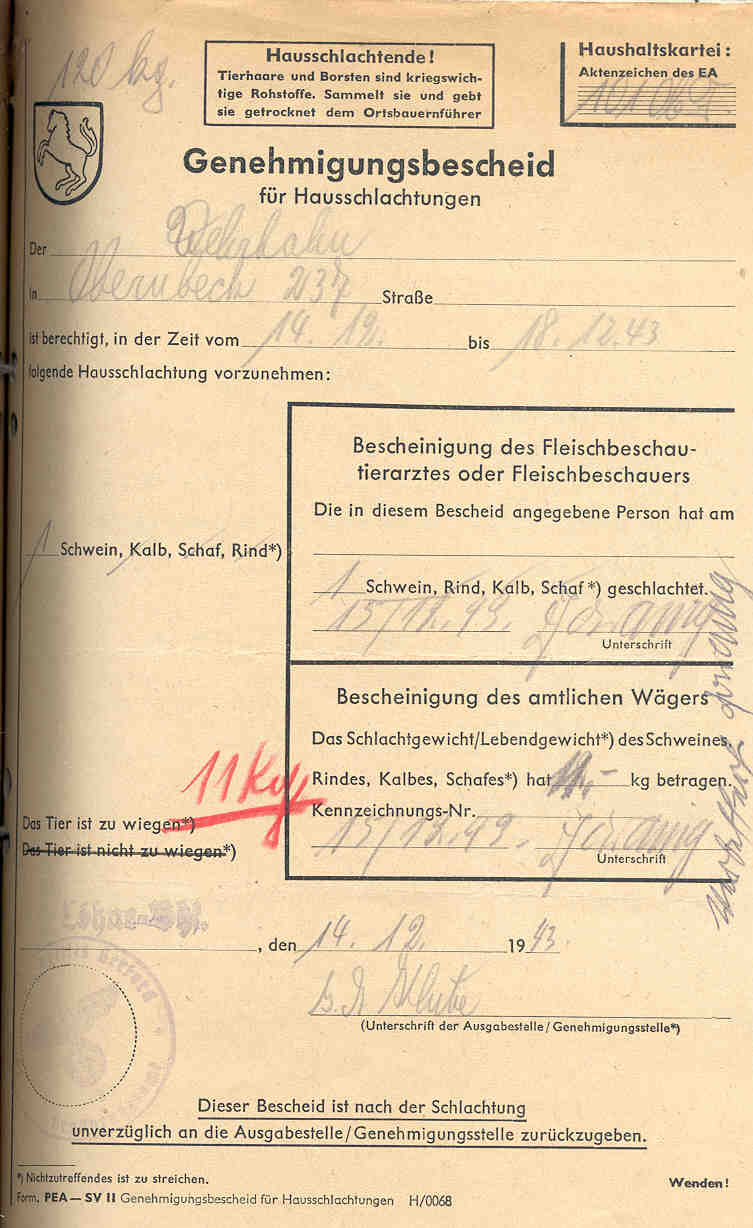 120 kg.
Hausschlachtende!
Tierhaare und Borsten sind kriegswich-
tige Rohstoffe. Sammelt sie und gebt
sie getrocknet dem Ortsbauernführer
Haushaltskartei:
Aktenzeichen des EA
Genehmigungsbescheid
für Hausschlachtungen
Der Wehrhahn
in Obernbeck 237 Straße
ist berechtigt, in der Zeit vom 14. 12. bis 18. 12. 43
folgende Hausschlachtung vorzunehmen:
1 Schwein, Kalb, Schaf, Rind*)
Bescheinigung des Fleischbeschau-
tierarztes oder Fleischbeschauers
Die in diesem Bescheid angegebene Person hat am
1 Schwein, Rind, Kalb, Schaf*) geschlachtet.
15/12. 43.
Unterschrift
Bescheinigung des amtlichen Wägers
Das Schlachtgewicht/Lebendgewicht*) des Schweines,
Rindes, Kalbes, Schafes*) hat kg betragen.
Kennzeichnungs-Nr.
15/12. 43.
Unterschrift
11 Kg
Das Tier ist zu wiegen*)
Das Tier ist nicht zu wiegen*)
, den 14. 12. 1943.
(Unterschrift der Ausgabestelle/Genehmigungsstelle*)
Dieser Bescheid ist nach der Schlachtung
unverzüglich an die Ausgabestelle/Genehmigungsstelle zurückzugeben.
*) Nichtzutreffendes ist zu streichen.
Wenden!
Form. PEA — SV II Genehmigungsbescheid für Hausschlachtungen H/0068